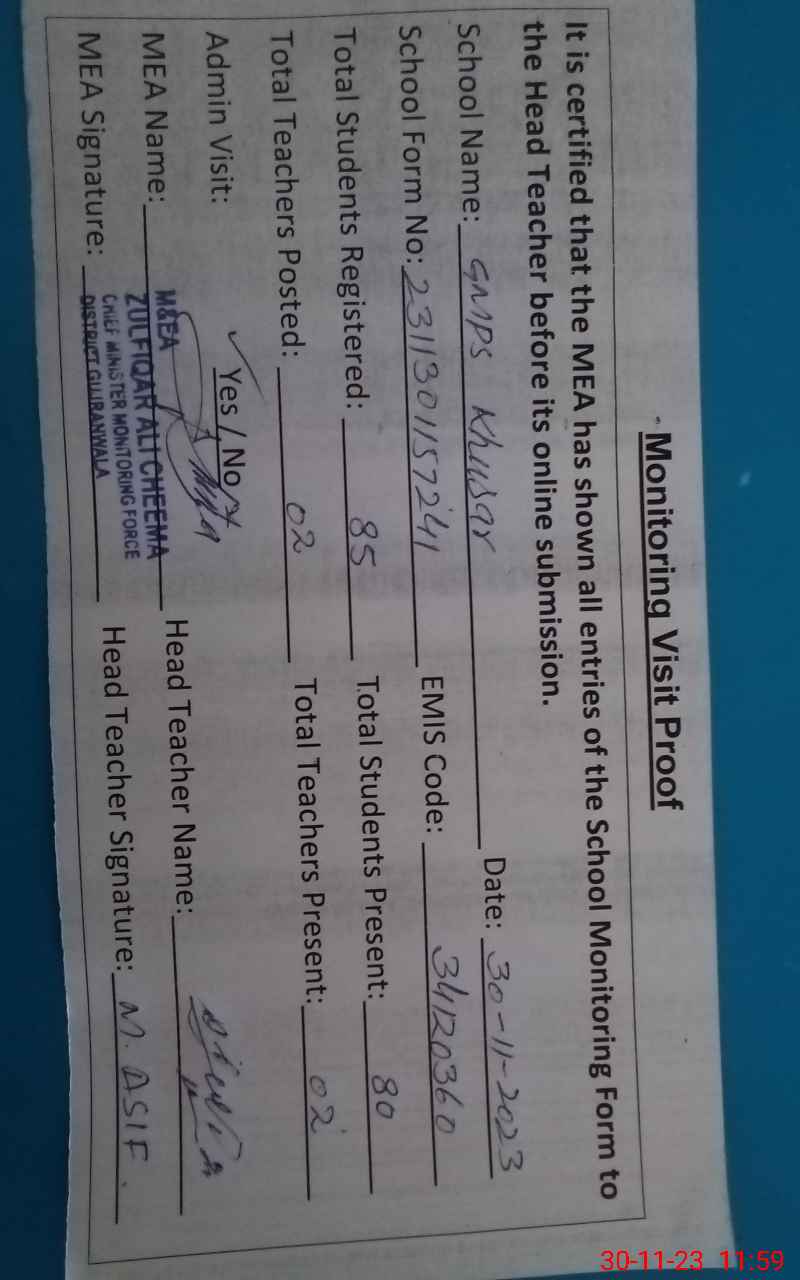 Monitoring Visit Proof
It is certified that the MEA has shown all entries of the School Monitoring Form to
the Head Teacher before its online submission.
School Name: GMPS Date: 30-11-2023
School Form No: 2311301157241 EMIS Code: 34120360
Total Students Registered: 85 Total Students Present: 80
Total Teachers Posted: 02 Total Teachers Present: 02
Admin Visit: Yes / No
MEA Name: Head Teacher Name:
MEA Signature: Head Teacher Signature: M. ASIF.
M&EA
ZULFIQAR ALI CHEEMA
CHIEF MINISTER MONITORING FORCE
DISTRICT GUJRANWALA
30-11-23 11:59